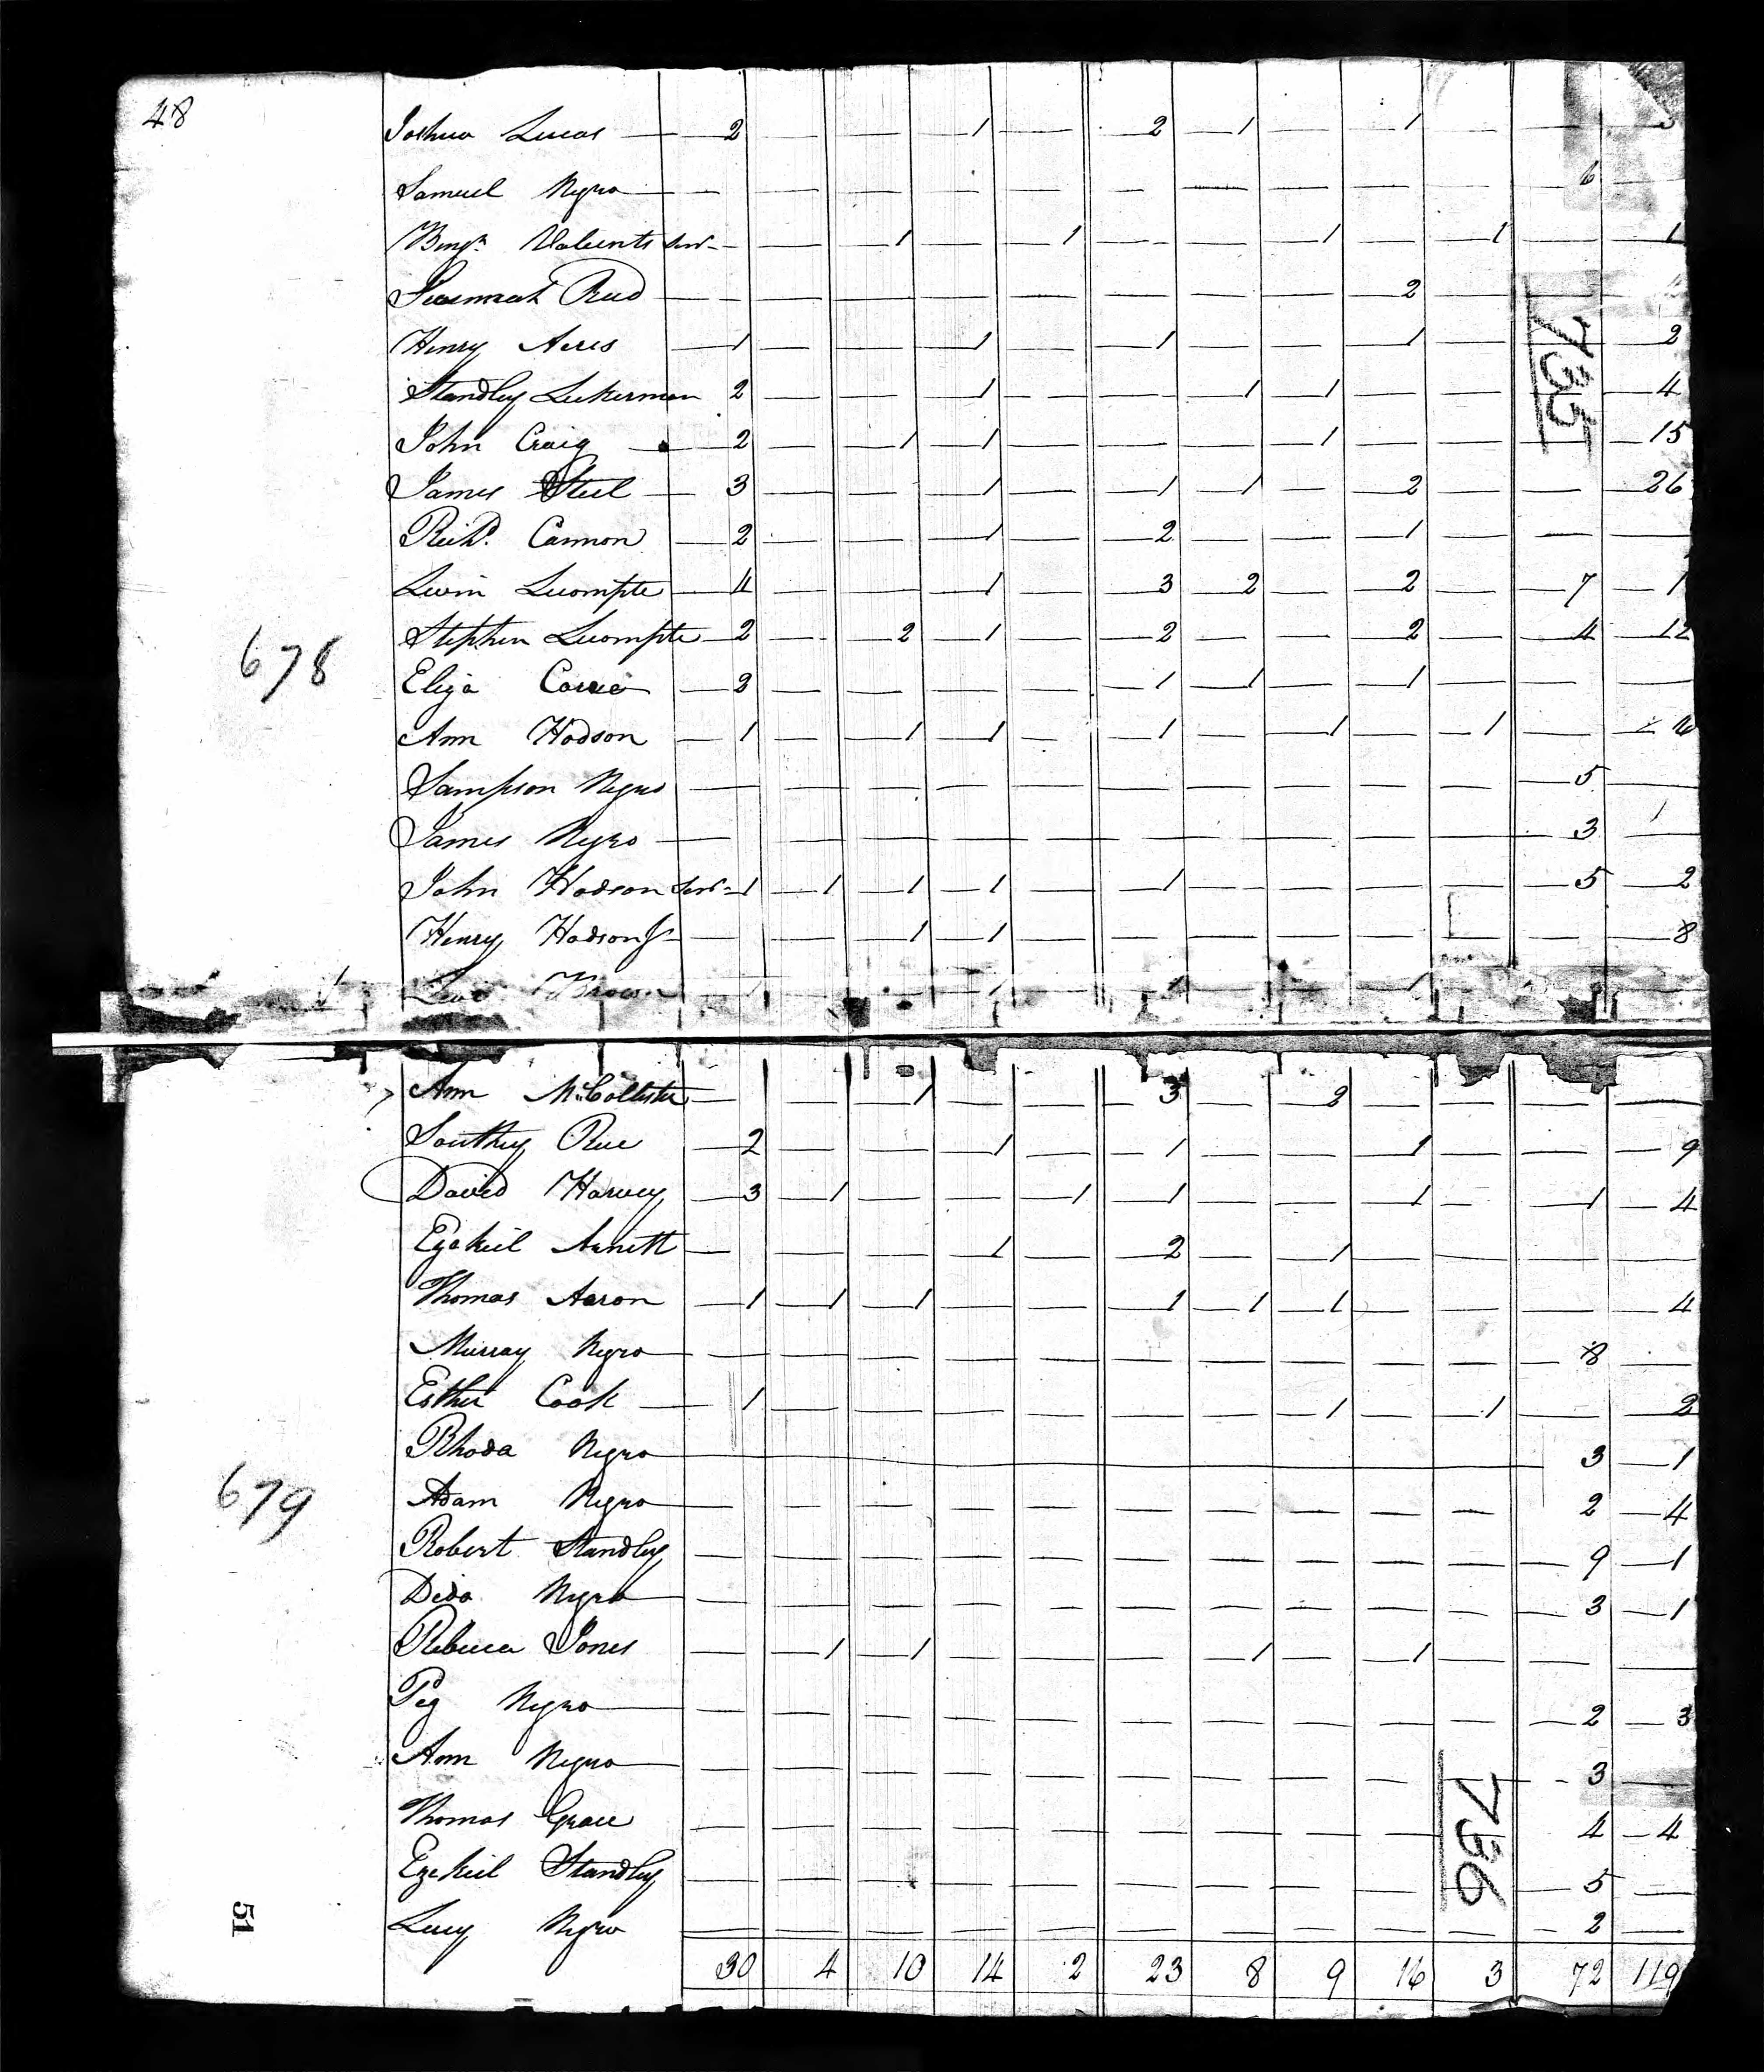 48
Joshua Lucas 2 1 2 1 1
Samuel Negro 6
Benjn. Senr 1 1 1 1 1
2
Henry Acres 1 1 1 1 2
Standley Luckerman 2 1 1 1 4
John Craig 2 1 1 1 15
James Steel 3 1 1 1 2 26
Richd. Cannon 2 1 2 1
Levin Lecompte 4 1 3 2 2 7 1
Stephen Lecompte 2 2 1 2 2 4 12
Eliza 3 1 1 1
Ann Hodson 1 1 1 1 1 1
Sampson Negro 5
James Negro 3 1
John Hodson Senr 1 1 1 1 1 5 2
Henry Hodson Jr 1 1 8
Brown
678
735
Ann McCollister 1 3 2
Southey Rue 2 1 1 1 9
David Harvey 3 1 1 1 1 1 4
Ezekiel Arnett 1 2 1
Thomas Aaron 1 1 1 1 1 1 4
Murray Negro 8
Esther Cook 1 1 1 2
Rhoda Negro 3 1
Adam Negro 2 4
Robert Standley 9 1
Dido Negro 3 1
Rebecca Jones 1 1 1 1
Peg Negro 2 3
Ann Negro 3
Thomas Grace 4 4
Ezekiel Standley 5
Lucy Negro 2
30 4 10 14 2 23 8 9 16 3 72 119
679
736
51